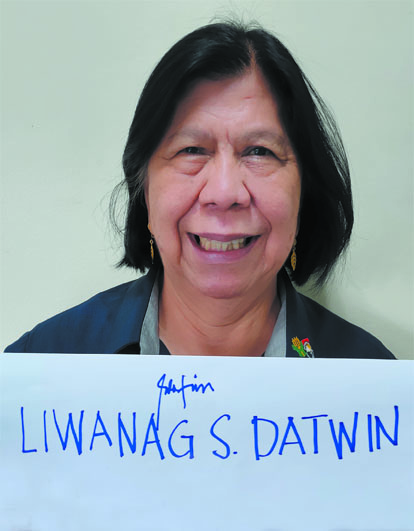 LIWANAG S. DATWIN